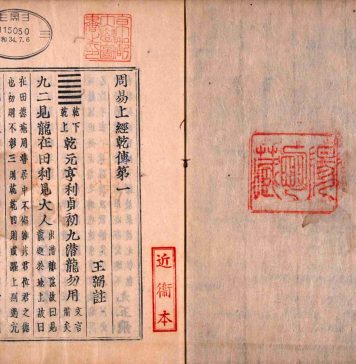 周易上經乾傳第一
王弼註
乾下
乾上
乾元亨利貞初九潛龍勿用
文言
備矣
九二見龍在田利見大人
出潛離隱故曰見
龍處於地上故曰
在田德施周普居中不偏雖非君位君之德
也初則不彰三則乾乾四則或躍上則過亢
近衞本
115050
34.7.6